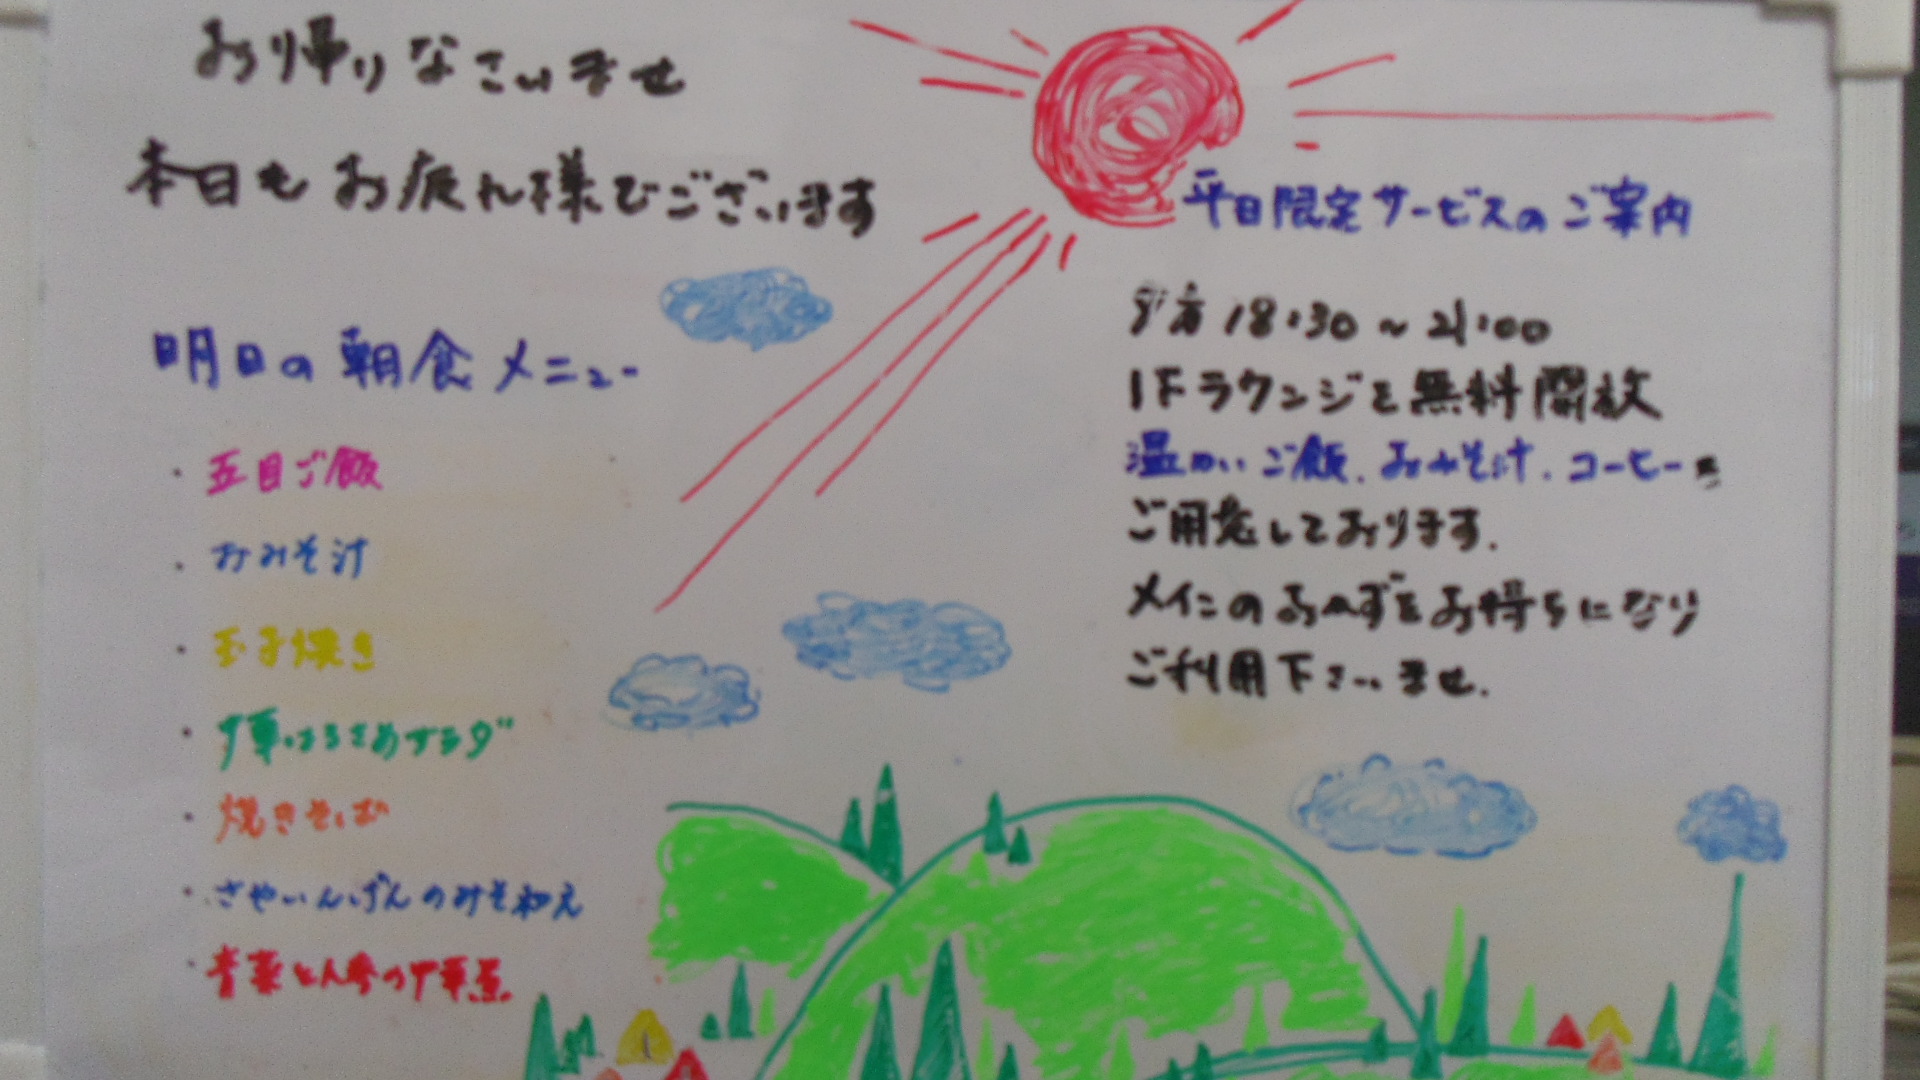 お帰りなさいませ
本日もお疲れ様でございます
明日の朝食メニュー
・五目ご飯
・おみそ汁
・玉子焼き
・中華はるさめサラダ
・焼きそば
・さやいんげんのみそ和え
・青菜と人参の中華煮
平日限定サービスのご案内
夕方 18:30～21:00
1Fラウンジを無料開放
温かいご飯.おみそ汁.コーヒーを
ご用意しております.
メインのおかずをお持ちになり
ご利用下さいませ.